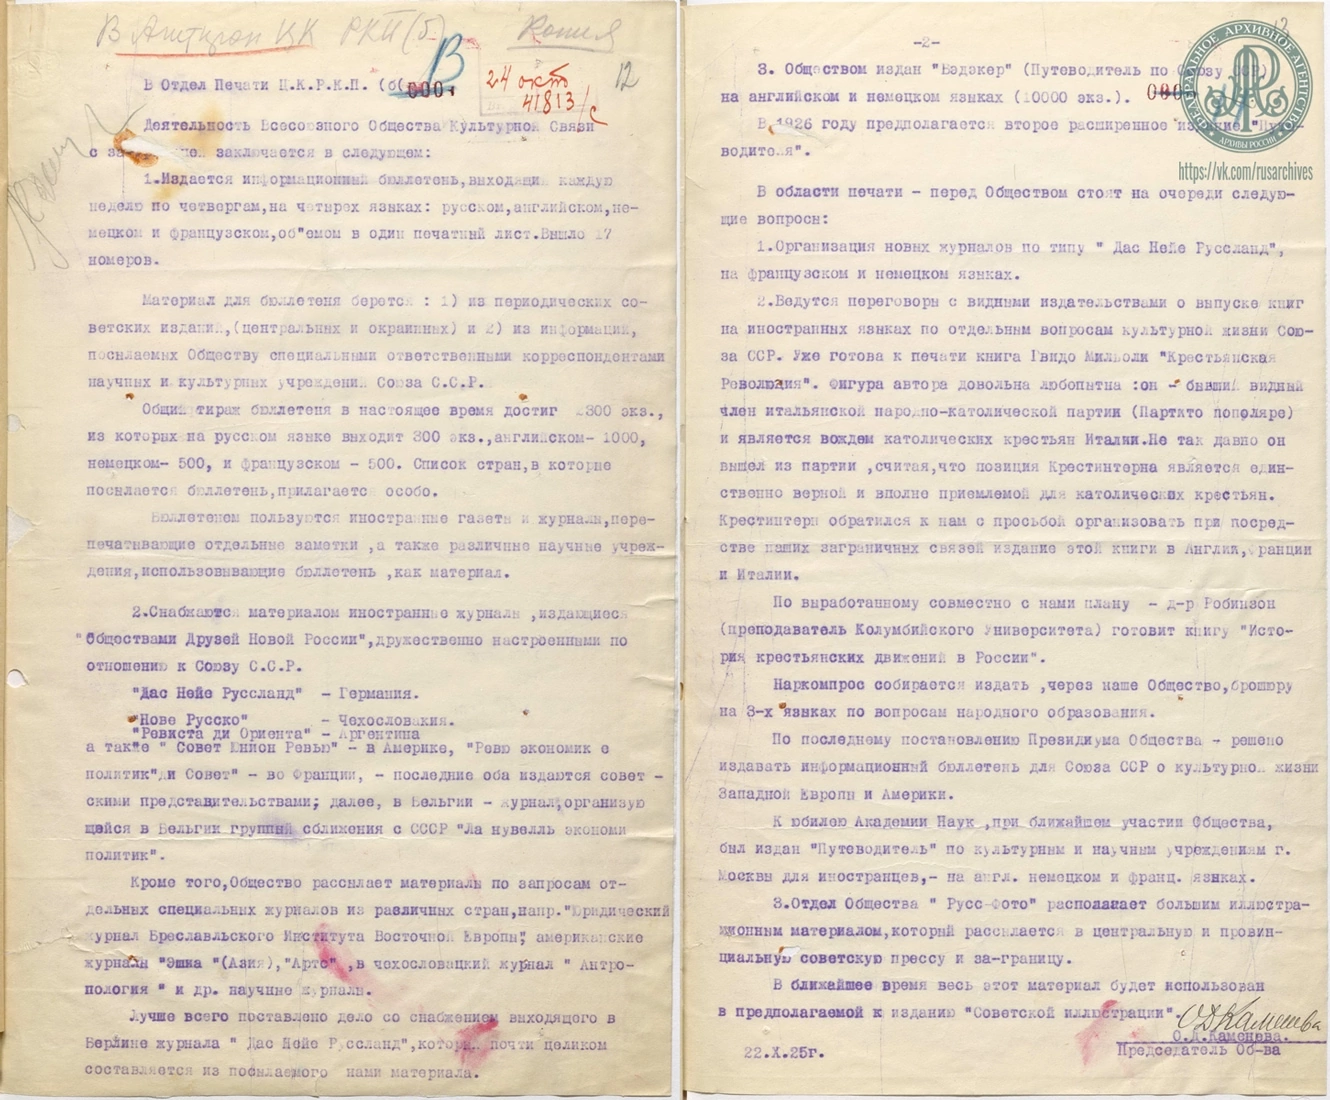 В Агитпроп ЦК РКП(б) Копия
В
24 окт
41813/с
12
В Отдел Печати Ц.К.Р.К.П. (б(
Деятельность Всесоюзного Общества Культурной Связи
с заключается в следующем:
1.Издается информационный бюллетень,выходящий каждую
неделю по четвергам,на четырех языках: русском,английском,не-
мецком и французском,об"емом в один печатный лист.Вышло 17
номеров.
Материал для бюллетеня берется : 1) из периодических со-
ветских изданий,(центральных и окраинных) и 2) из информации,
посылаемых Обществу специальными ответственными корреспондентами
научных и культурных учреждений Союза С.С.Р.
Общий тираж бюллетеня в настоящее время достиг 2300 экз.,
из которых на русском языке выходит 300 экз.,английском- 1000,
немецком- 500, и французском - 500. Список стран,в которые
посылается бюллетень,прилагается особо.
Бюллетенем пользуются иностранные газеты и журналы,пере-
печатывающие отдельные заметки ,а также различные научные учреж-
дения,использовывающие бюллетень ,как материал.
2.Снабжаются материалом иностранные журналы ,издающиеся
"Обществами Друзей Новой России",дружественно настроенными по
отношению к Союзу С.С.Р.
"Дас Нейе Руссланд" - Германия.
"Нове Русско" - Чехословакия.
"Ревиста ди Ориента" - Аргентина
а также " Совет Юнион Ревью" - в Америке, "Ревю экономик е
политик"ди Совет" - во Франции, - последние оба издаются совет -
скими представительствами; далее, в Бельгии - журнал,организую
щейся в Бельгии группой сближения с СССР "Ла нувелль экономи
политик".
Кроме того,Общество рассылает материалы по запросам от-
дельных специальных журналов из различных стран,напр."Юридический
журнал Бреславльского Института Восточной Европы", американские
журналы "Эшиа "(Азия),"Артс" ,в чехословацкий журнал " Антро-
пология " и др. научные журналы.
Лучше всего поставлено дело со снабжением выходящего в
Берлине журнала " Дас Нейе Руссланд",который почти целиком
составляется из посылаемого нами материала.
-2-
12
3. Обществом издан "Бэдэкер" (Путеводитель по Союзу ССР)
на английском и немецком языках (10000 экз.).
В 1926 году предполагается второе расширенное издание "Путе-
водителя".
В области печати - перед Обществом стоят на очереди следую-
щие вопросы:
1.Организация новых журналов по типу " Дас Нейе Руссланд",
на французском и немецком языках.
2.Ведутся переговоры с видными издательствами о выпуске книг
на иностранных языках по отдельным вопросам культурной жизни Сою-
за ССР. Уже готова к печати книга Гвидо Мильоли "Крестьянская
Революция". Фигура автора довольна любопытна :он - бывший видный
член итальянской народно-католической партии (Партито пополяре)
и является вождем католических крестьян Италии.Не так давно он
вышел из партии ,считая,что позиция Крестинтерна является един-
ственно верной и вполне приемлемой для католических крестьян.
Крестинтерн обратился к нам с просьбой организовать при посред-
стве наших заграничных связей издание этой книги в Англии,Франции
и Италии.
По выработанному совместно с нами плану - д-р Робинзон
(преподаватель Колумбийского Университета) готовит книгу "Исто-
рия крестьянских движений в России".
Наркомпрос собирается издать ,через наше Общество,брошюру
на 3-х языках по вопросам народного образования.
По последнему постановлению Президиума Общества - решено
издавать информационный бюллетень для Союза ССР о культурной жизни
Западной Европы и Америки.
К юбилею Академии Наук ,при ближайшем участии Общества,
был издан "Путеводитель" по культурным и научным учреждениям г.
Москвы для иностранцев,- на англ. немецком и франц. языках.
3.Отдел Общества " Русс-Фото" располагает большим иллюстра-
ционным материалом,который рассылается в центральную и провин-
циальную советскую прессу и за-границу.
В ближайшее время весь этот материал будет использован
в предполагаемой к изданию "Советской иллюстрации".
ОДКаменева
О.Д.Каменева.
22.X.25г. Председатель Об-ва
ФЕДЕРАЛЬНОЕ АРХИВНОЕ АГЕНТСТВО
АРХИВЫ РОССИИ
https://vk.com/rusarchives